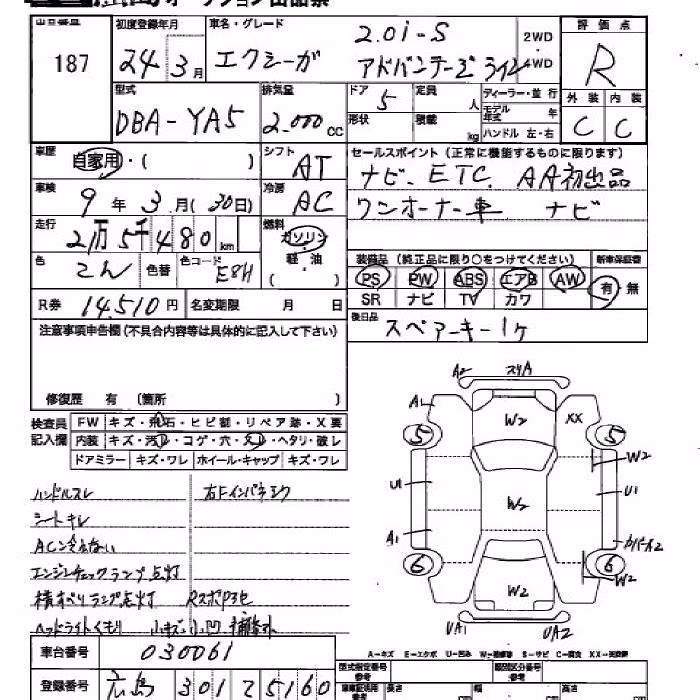 広島オークション出品票
出品番号 187
初度登録年月 24年3月
車名・グレード エクシーガ 2.0i-S アドバンテージライン 2WD 4WD
評価点 R
外装 C 内装 C
型式 DBA-YA5
排気量 2,000cc
ドア 5 定員 人
形状 積載 kg
ディーラー・並行
モデル年式 年
ハンドル 左・右
車歴 自家用・( )
シフト AT
セールスポイント(正常に機能するものに限ります)
ナビ ETC AA初出品
ワンオーナー車 ナビ
車検 9年3月(30日)
冷房 AC
走行 2万5千480km
燃料 ガソリン 軽油 ( )
色 こん 色替 色コード E8H
装備品(純正品に限り○をつけてください) 新車保証書
PS PW ABS エアB AW 有 無
SR ナビ TV カワ
R券 14,510円 名変期限 月 日
後日品 スペアーキー1ケ
注意事項申告欄(不具合内容等は具体的に記入して下さい)
修復歴 有 (箇所 )
検査員記入欄
FW キズ・飛石・ヒビ割・リペア跡・X要
内装 キズ・汚れ・コゲ・穴・スレ・ヘタリ・破レ
ドアミラー キズ・ワレ ホイール・キャップ キズ・ワレ
ハンドルスレ
シートキレ
ACン冷えない
エンジンチェックランプ点灯
横すべりランプ点灯
ヘッドライトくもり 小キズ、小凹
A2 スリA
A1 W2 XX
5 5
W2
U1 W2 U1
A1 カバーA2
6 6
W2 W2
UA1 UA2
A-キズ E-エクボ U-凹み W-補修跡 S-サビ C-腐食 XX-交換歴
車台番号 030061
登録番号 広島 301 て 5160
型式指定番号 参考
類別区分番号 参考
長さ cm 幅 cm 高さ